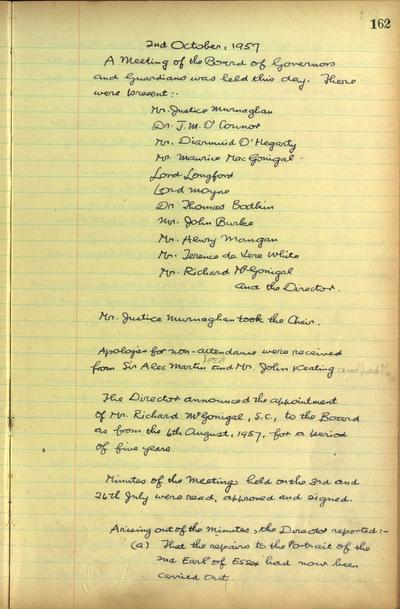 162
2nd October, 1957
A Meeting of the Board of Governors
and Guardians was held this day. There
were present:-
Mr. Justice Murnaghan
Dr. J. M. O'Connor
Mr. Diarmuid O'Hegarty
Mr. Maurice MacGonigal
Lord Longford
Lord Moyne
Dr Thomas Bodkin
Mr. John Burke
Mr. Henry Mangan
Mr. Terence de Vere White
Mr. Richard McGonigal
and the Director.
Mr. Justice Murnaghan took the Chair.
Apologies for non-attendance were received
from Sir Alec Martin and Mr. John Keating and
The Director announced the appointment
of Mr. Richard McGonigal, S.C., to the Board
as from the 6th August, 1957, for a period
of five years
Minutes of the Meetings held on the 3rd and
26th July were read, approved and signed.
Arising out of the minutes, the Director reported:-
(a) That the repairs to the Portrait of the
2nd Earl of Essex had now been
carried out.